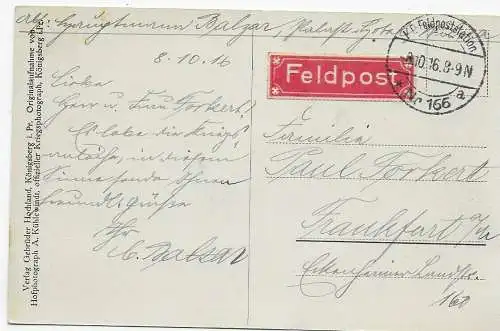 Abs. Hauptmann Balzar,
8.10.16
Liebe
Herr u. Frau Forkert!
Es lebe die Kriegs-
anleihe, in diesem
Sinne sende Ihnen
freundl. Grüße
Ihr
C. Balzar
Verlag Gebrüder Hochland, Königsberg i. Pr. Originalaufnahme von
Hofphotograph A. Kühlewindt, offizieller Kriegsphotograph, Königsberg i. Pr.
Feldpost
Feldpoststation
10.16.8-9N
Nr 166 a
Familie
Paul Forkert
Frankfurt a/M
Eckenheimer Landstr.
160